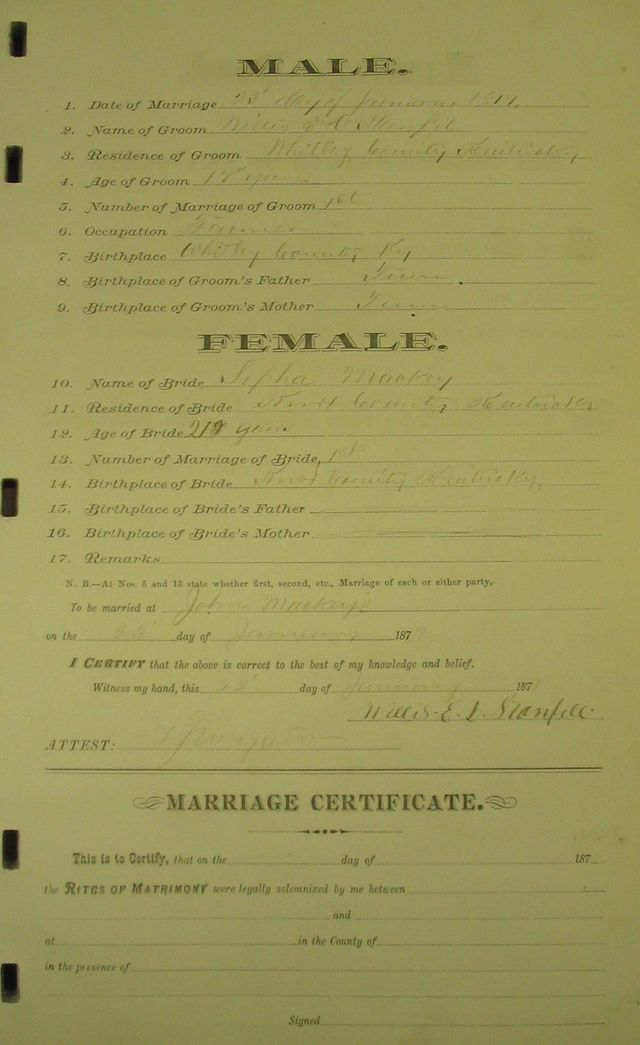 MALE.
1. Date of Marriage 23d day of January 1877,
2. Name of Groom Willis E L Stanfil
3. Residence of Groom Whitley County Kentucky
4. Age of Groom years
5. Number of Marriage of Groom 1st
6. Occupation Farmer
7. Birthplace Whitley County Ky
8. Birthplace of Groom's Father Tenn
9. Birthplace of Groom's Mother Tenn
FEMALE.
10. Name of Bride Sepha Mackey
11. Residence of Bride Knox County Kentucky
12. Age of Bride years
13. Number of Marriage of Bride, 1st
14. Birthplace of Bride Knox County Kentucky
15. Birthplace of Bride's Father
16. Birthplace of Bride's Mother
17. Remarks
N. B.—At Nos. 5 and 13 state whether first, second, etc., Marriage of each or either party.
To be married at John Mackeys
on the 23d day of January 187
I CERTIFY that the above is correct to the best of my knowledge and belief.
Witness my hand, this 22d day of January 187
Willis. E. L. Stanfill.
ATTEST:
MARRIAGE CERTIFICATE.
This is to Certify, that on the day of 187
the RITES OF MATRIMONY were legally solemnized by me between
and
at in the County of
in the presence of
Signed